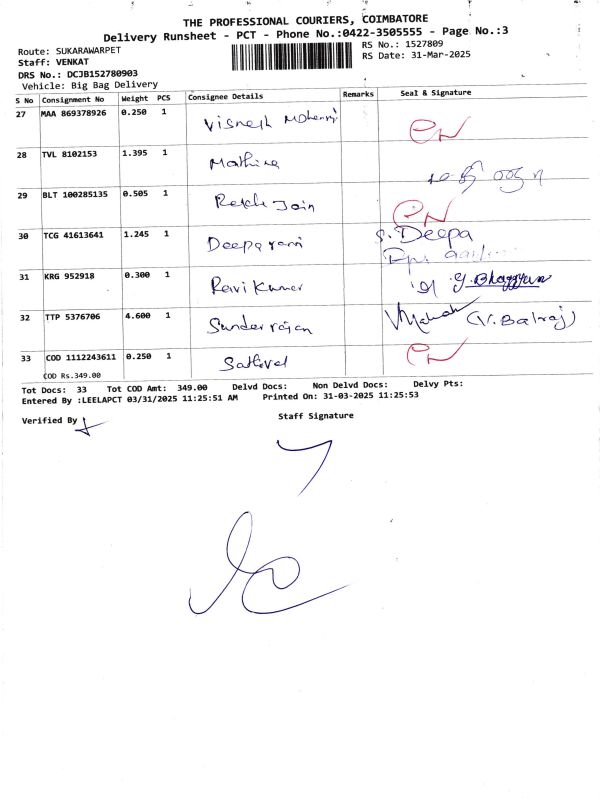 THE PROFESSIONAL COURIERS, COIMBATORE
Delivery Runsheet - PCT - Phone No.:0422-3505555 - Page No.:3
Route: SUKARAWARPET
RS No.: 1527809
Staff: VENKAT
RS Date: 31-Mar-2025
DRS No.: DCJB152780903
Vehicle: Big Bag Delivery
S No Consignment No Weight PCS Consignee Details Remarks Seal & Signature
27 MAA 869378926 0.250 1
28 TVL 8102153 1.395 1 Mathina
29 BLT 100285135 0.505 1 Rekha Join
30 TCG 41613641 1.245 1 Deepa rani S. Deepa
31 KRG 952918 0.300 1 Ravi Kumar
32 TTP 5376706 4.600 1 Sunder rajan (V. Balraj)
33 COD 1112243611 0.250 1
COD Rs.349.00
Tot Docs: 33 Tot COD Amt: 349.00 Delvd Docs: Non Delvd Docs: Delvy Pts:
Entered By :LEELAPCT 03/31/2025 11:25:51 AM Printed On: 31-03-2025 11:25:53
Verified By
Staff Signature